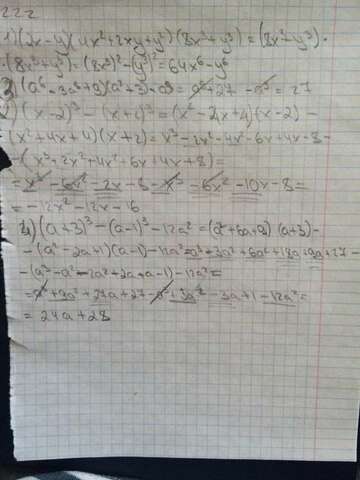 222
1) (2x-y)(4x²+2xy+y²)(8x³+y³) = (8x³-y³)·
·(8x³+y³) = (8x³)²-(y³)² = 64x⁶-y⁶
2) (a⁶-3a³+9)(a³+3)-a⁹ = a⁹+27-a⁹ = 27
(x-2)³-(x+2)³ = (x²-4x+4)(x-2)-
-(x²+4x+4)(x+2) = x³-2x²-4x²-6x+4x-8-
-(x³+2x²+4x²+6x+4x+8) =
= x³-6x²-2x-8-x³-6x²-10x-8 =
= -12x²-12x-16
4) (a+3)³-(a-1)³-12a² = (a²+6a+9)(a+3)-
-(a²-2a+1)(a-1)-12a² = a³+3a²+6a²+18a+9a+27-
-(a³-a²-2a²+2a+a-1)-12a² =
= a³+9a²+27a+27-a³+3a²-3a+1-12a² =
= 24a+28